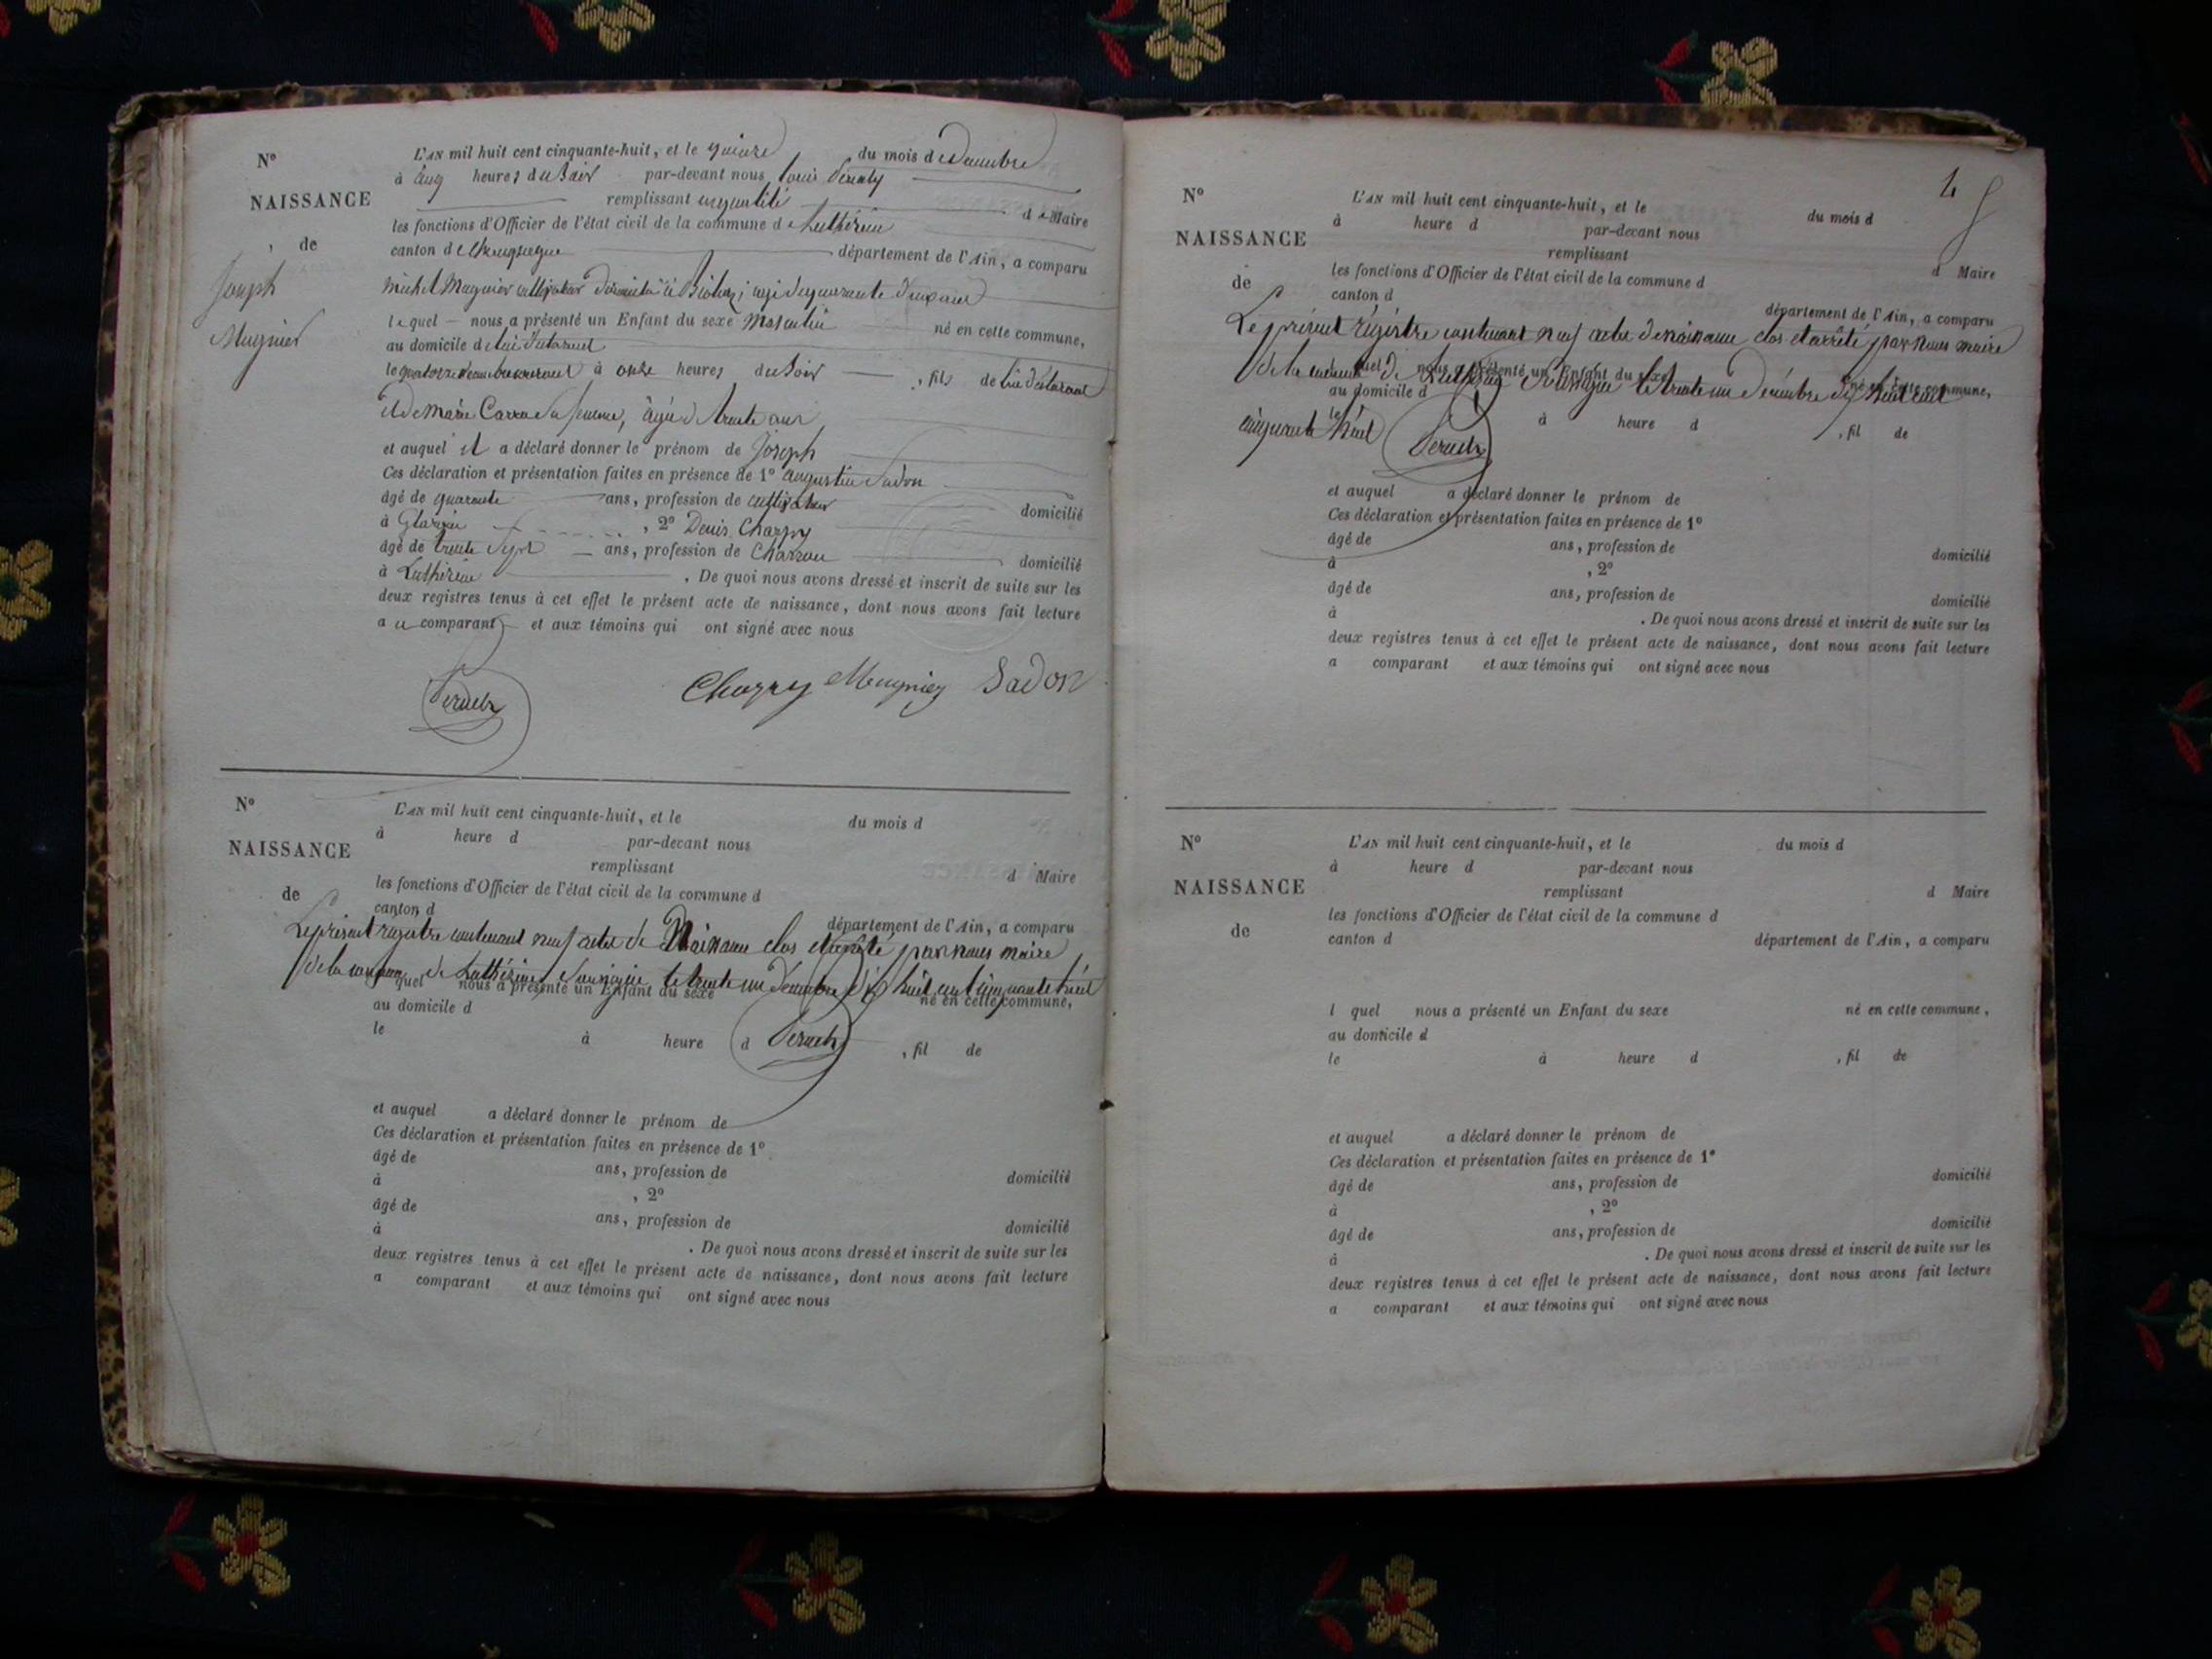 N°
NAISSANCE
de
Joseph
Mugnier
L'AN mil huit cent cinquante-huit, et le quinze du mois de décembre
à cinq heures du soir par-devant nous Louis
remplissant en qualité de Maire
les fonctions d'Officier de l'état civil de la commune de Luthézieu
canton de Champagne département de l'Ain, a comparu
michel Mugnier cultivateur domicilié à agé de quarante deux ans
lequel nous a présenté un Enfant du sexe masculin né en cette commune,
au domicile de lui déclarant
le quatorze décembre courant à onze heures du soir , fils de lui déclarant
et de marie sa femme, âgée de trente ans
et auquel il a déclaré donner le prénom de Joseph
Ces déclaration et présentation faites en présence de 1° augustin Sadon
âgé de quarante ans, profession de cultivateur domicilié
à , 2° Denis Charpy
âgé de trente sept ans, profession de Charron domicilié
à Luthézieu . De quoi nous avons dressé et inscrit de suite sur les
deux registres tenus à cet effet le présent acte de naissance, dont nous avons fait lecture
a u comparant et aux témoins qui ont signé avec nous
Charpy Mugnier Sadon
N°
NAISSANCE
de
L'AN mil huit cent cinquante-huit, et le du mois d
à heure d par-devant nous
remplissant d Maire
les fonctions d'Officier de l'état civil de la commune d
canton d
département de l'Ain, a comparu
Le présent registre contenant neuf actes de Naissance clos et arrêté par nous maire
de la commune de Luthézieu soussigné le trente un décembre dix huit cent cinquante huit
quel nous a présenté un Enfant du sexe né en cette commune,
au domicile d
le à heure d , fil de
et auquel a déclaré donner le prénom de
Ces déclaration et présentation faites en présence de 1°
âgé de ans, profession de domicilié
à , 2°
âgé de ans, profession de domicilié
à . De quoi nous avons dressé et inscrit de suite sur les
deux registres tenus à cet effet le présent acte de naissance, dont nous avons fait lecture
a comparant et aux témoins qui ont signé avec nous
N°
NAISSANCE
de
L'AN mil huit cent cinquante-huit, et le du mois d
à heure d par-devant nous
remplissant d Maire
les fonctions d'Officier de l'état civil de la commune d
canton d département de l'Ain, a comparu
Le présent régistre contenant neuf actes de naissance clos et arrêté par nous maire
de la commune de Luthézieu soussigné le trente un décembre dix huit cent
quel nous a présenté un Enfant du sexe né en cette commune,
au domicile d
cinquante huit
le à heure d , fil de
et auquel a déclaré donner le prénom de
Ces déclaration et présentation faites en présence de 1°
âgé de ans, profession de domicilié
à , 2°
âgé de ans, profession de domicilié
à . De quoi nous avons dressé et inscrit de suite sur les
deux registres tenus à cet effet le présent acte de naissance, dont nous avons fait lecture
a comparant et aux témoins qui ont signé avec nous
N°
NAISSANCE
de
L'AN mil huit cent cinquante-huit, et le du mois d
à heure d par-devant nous
remplissant d Maire
les fonctions d'Officier de l'état civil de la commune d
canton d département de l'Ain, a comparu
l quel nous a présenté un Enfant du sexe né en cette commune,
au domicile d
le à heure d , fil de
et auquel a déclaré donner le prénom de
Ces déclaration et présentation faites en présence de 1°
âgé de ans, profession de domicilié
à , 2°
âgé de ans, profession de domicilié
à . De quoi nous avons dressé et inscrit de suite sur les
deux registres tenus à cet effet le présent acte de naissance, dont nous avons fait lecture
a comparant et aux témoins qui ont signé avec nous